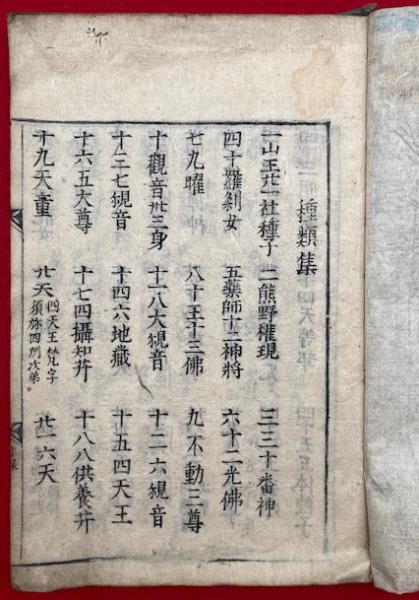 種類集
一山王廿一社種子　二熊野權現　三三十番神
四十羅剎女　五藥師十二神將　六十二光佛
七九曜　八十王十三佛　九不動三尊
十觀音卅三身　十一八大観音　十二六観音
十三七観音　十四六地藏　十五四天王
十六五大尊　十七四攝知𦬇　十八八供養𦬇
十九天童　廿天四天王梵字須弥四州次第　廿一六天